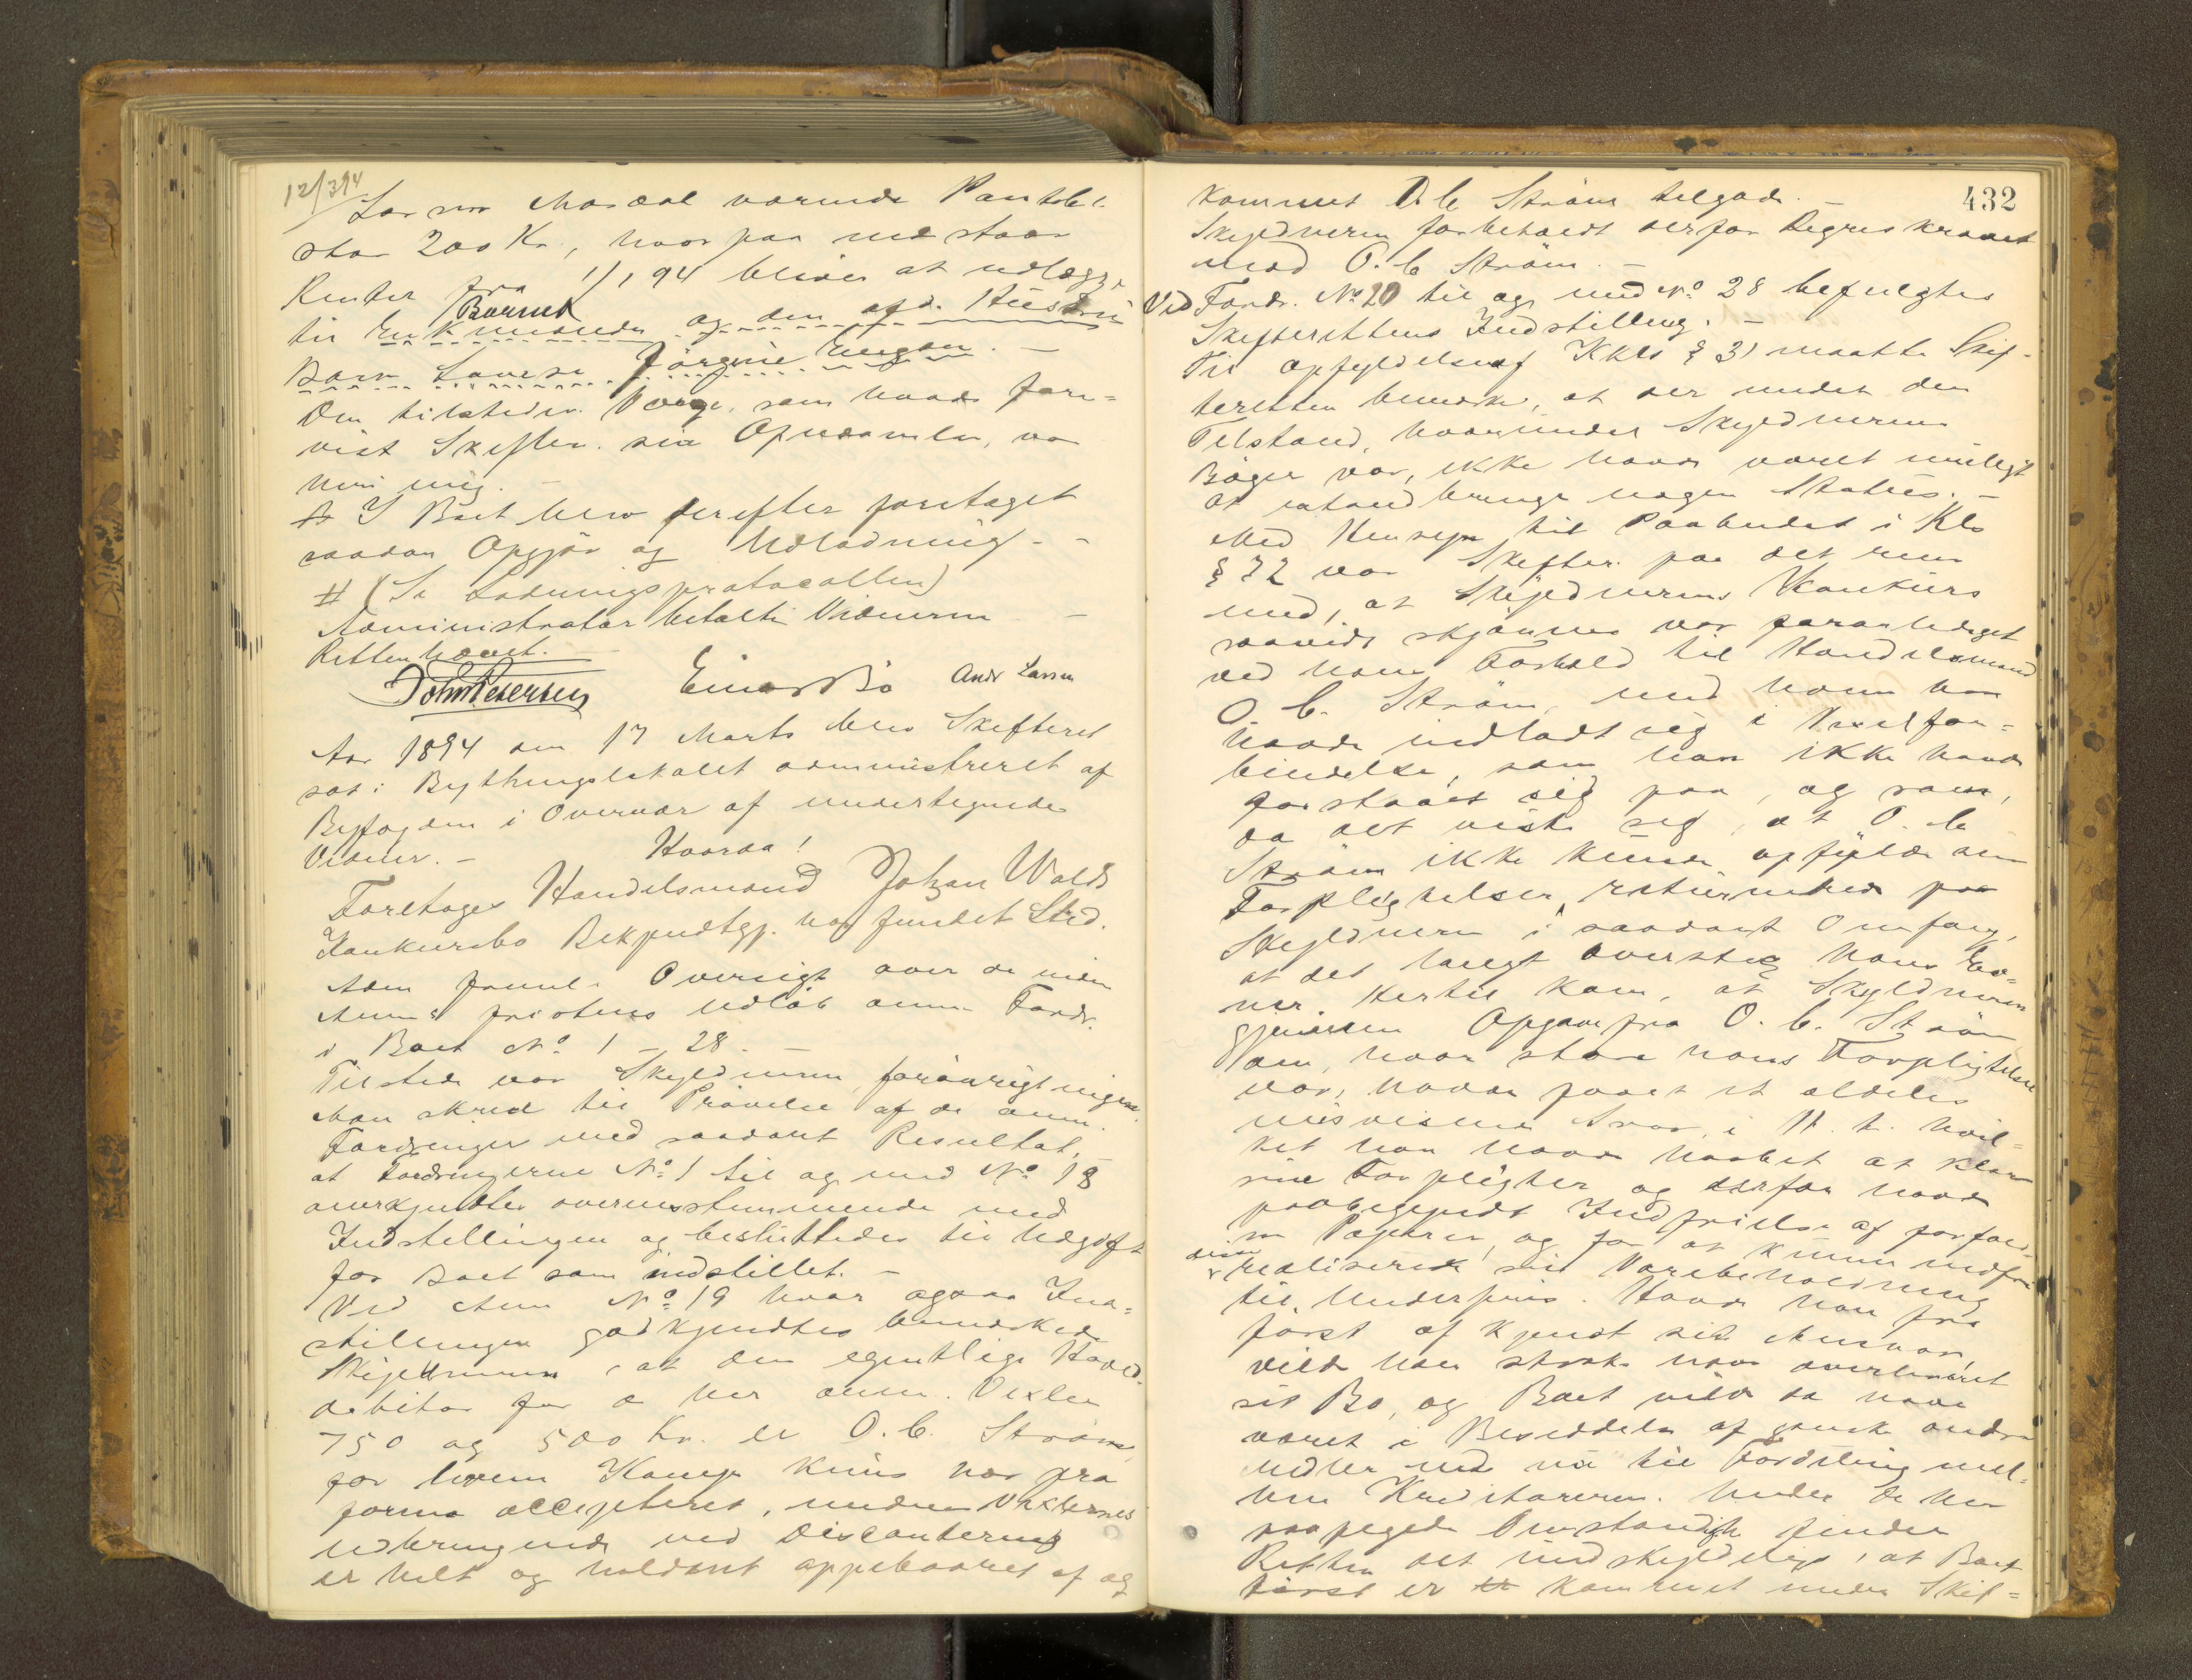 12/3 94
Lar mor Mosdal værende Pantobl.
stor 200 Kr., hvorpaa indestaar
Renter fra 1/1 94 bliver at udlægge
Barnet
til Enkemanden og den afd. Hustrus
Barn Lovise Jörgine Engsen. –
Den tilstedev. Værge, som havde fore=
vist Skifter. sin Opnævnelse, var
enig. –
I Boet blev derefter foretaget
saadan Opgjör og Udlodning. –
# (Se Lodningsprotocollen)
Administrator betalte Vidnerne –
Retten hævet. –
John Petersen Einar Bö Andr Larsen
Aar 1894 den 17 Marts blev Skifteret
sat i Bythingslokalet administreret af
Byfogden i Overvær af undertegnede
Vidner. – Hvorda!
Foretages Handelsmand Johan Wolds
Konkursbo Bekjendtgj. har fundet Sted.
Adm freml. Oversigt over de inden
Anm. fristens Udløb anm. Fordr.
i Boet No. 1 – 28. –
Tilstede var Skyldneren, forøvrigt ingen.
Man skred til Prövelse af de anm.
Fordringer med saadant Resultat,
at Fordringerne No. 1 til og med No. 18
anerkjendtes overensstemmende med
Indstillingen og besluttedes til Udgift
for Boet som indstillet. –
Ved Anm No. 19 hvor ogsaa Ind=
stillingen godkjendtes bemærkede
Skyldneren, at den egentlige Hoved-
debitor for de her anm. Vexler
750 og 500 Kr. er O. C. Ström,
for hvem Komp kuns har pro
forma accepteret, medens Vexlernes
Udbringende ved Discontering
er helt og holdent oppebaaret af og
432
kommet O. C. Ström tilgode. –
Skyldneren forbeholdt derfor Regreskravet
mod O. C. Ström. –
Ved Fordr. No. 20 til og med No. 28 befulgtes
Skifterettens Indstilling. –
Til Opfyldelse af Kkls § 31 maatte Skif-
teretten bemærke, at der under den
Tilstand, hvorunder Skyldnerens
Böger var, ikke havde været muligt
at istandbringe nogen Status. –
Med Hensyn til Paabudet i Kls
§ 72 var Skifter. paa det rene
med, at Skyldnerens Konkurs
saavidt skjönnes var foranlediget
ved hans Forhold til Handelsmand
O. C. Ström, med hvem han
havde indladt sig i Vexelfor=
bindelse, som han ikke havde
forstaaet sig paa, og som,
da det viste sig, at O. C.
Ström ikke kunde opfylde sine
Forpligtelser, returnerede paa
Skyldneren i saadant Omfang,
at det langt oversteg hans Ev=
ner. Hertil kom, at Skyldneren
gjennem Opgave fra O. C. Ström
om, hvor store hans Forpligtelser
var, havde faaet et aldeles
misvisende Svar, i H. t. hvil=
ket han havde haabet at klare
sine Forpligter og derfor havde
paabegyndt Indfrielse af forfald=
ne Papirer, og for at kunne indfri
disse
realiseret sin Varebeholdning
til Underpris. Havde han fra
först af kjendt sit Ansvar,
vilde han strax have overleveret
sit Bo, og Boet vilde da have
været i Besiddelse af ganske andre
Midler end nu til Fordeling mel=
lem Kreditorerne. Under de her
paapegede Omstændigh. finder
Retten det undskyldeligt, at Boet
først er kommet under Skif=